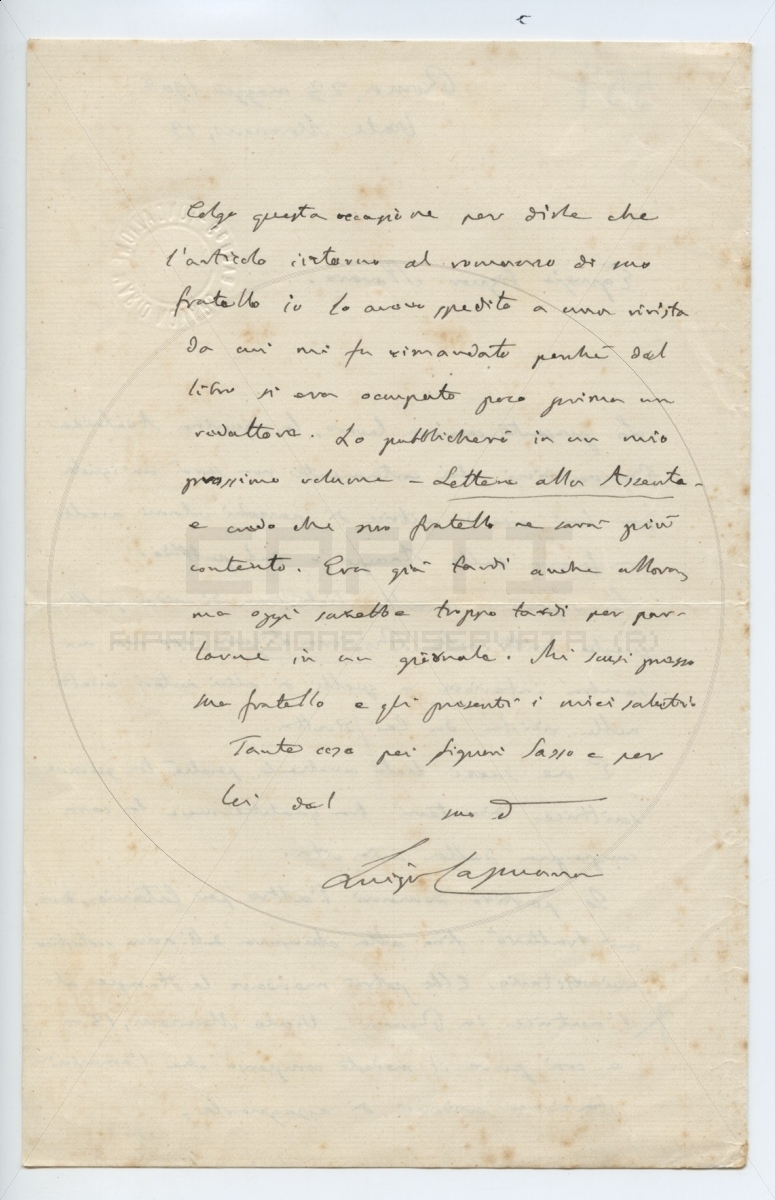 Colgo questa occasione per dirle che
l'articolo intorno al romanzo di suo
fratello io lo avevo spedito a una rivista
da cui mi fu rimandato perché del
libro si era occupato poco prima un
redattore. Lo pubblicherò in un mio
prossimo volume – Lettere alla Assente –
e credo che suo fratello ne sarà più
contento. Era già tardi anche allora,
ma oggi sarebbe troppo tardi per par-
larne in un giornale. Mi scusi presso
suo fratello e gli presenti i miei saluti.
Tante cose pei Signori Sasso e per
lei dal suo
Luigi Capuana
RIPRODUZIONE RISERVATA (R)